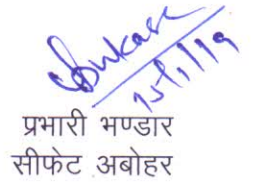 15/1/19
प्रभारी भण्डार
सीफेट अबोहर